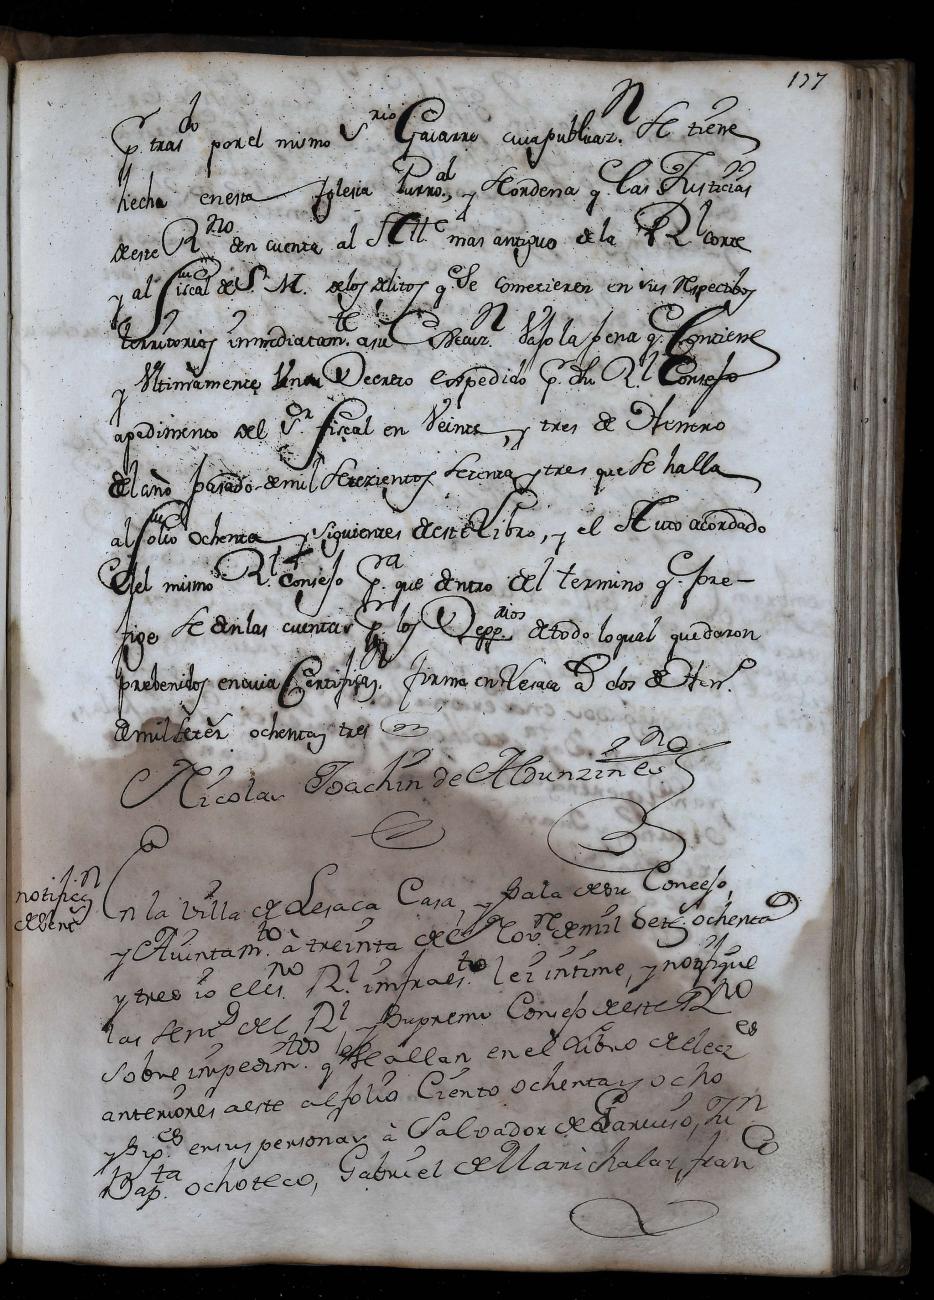 137
p.r tras.do por el mismo S.rio Gaiarre cuia publicaz.n se tiene
hecha en esta Iglesia Purro.al, y se ordena q. las Justicias
de este R.no den cuenta al S. Alc.e mas antiguo de la R.l corte
y al Fiscal de S. M. de los delitos q. se cometieren en sus respectibos
territorios inmediatam.te a su Execuz.n bajo la pena q. contiene
y Ultimamente Un Decreto expedido p.r dho R.l Consejo
a pedimento del S.or Fiscal en Veinte, y tres de Henero
del año pasado de mil setezientos setenta y tres que se halla
al folio ochenta y siguientes de este Libro, y el Auto acordado
del mismo R.l Consejo p.ra que dentro del termino q. pre-
fige se den las cuentas p.r los Depp.rios de todo lo qual quedaron
prebenidos en cuia Certificaz.n firme en Lesaca a dos de Hen.o
de mil seter.s ochenta y tres
Nicolas Joachin de Aldunzin es.no
notific.n
de sent.s
En la Villa de Lesaca Casa, y Sala de su Concejo,
y Aiuntam.to à treinta de Nov.re de mil set.s ochenta
y tres io el es.no R.l infraes.to lei intime, y notifique
las sent.s del R.l, y Supremo Consejo de este R.no
sobre impedim.tos q. se allan en el Libro de elecz.es
anteriores a este al folio Ciento ochenta y ocho
y sig.es en sus personas à Salvador de Garuiso, Ju.n
Bap.ta ochoteco, Gabriel de Marichalar, fran.co